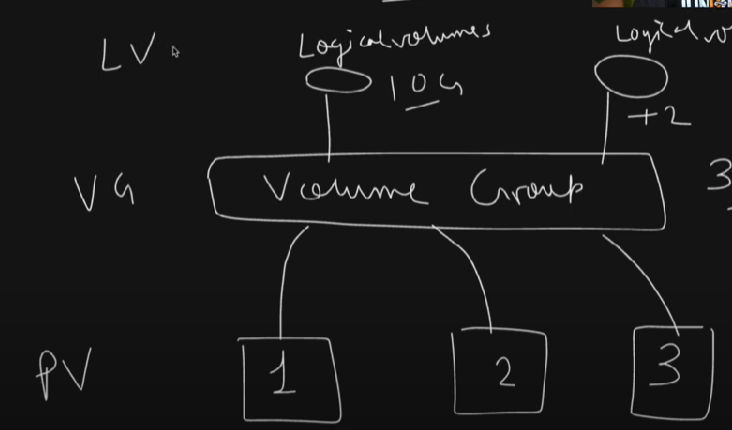 LV
Logical volumes
Logical
10G
+2
VG
Volume Group
3
PV
1
2
3